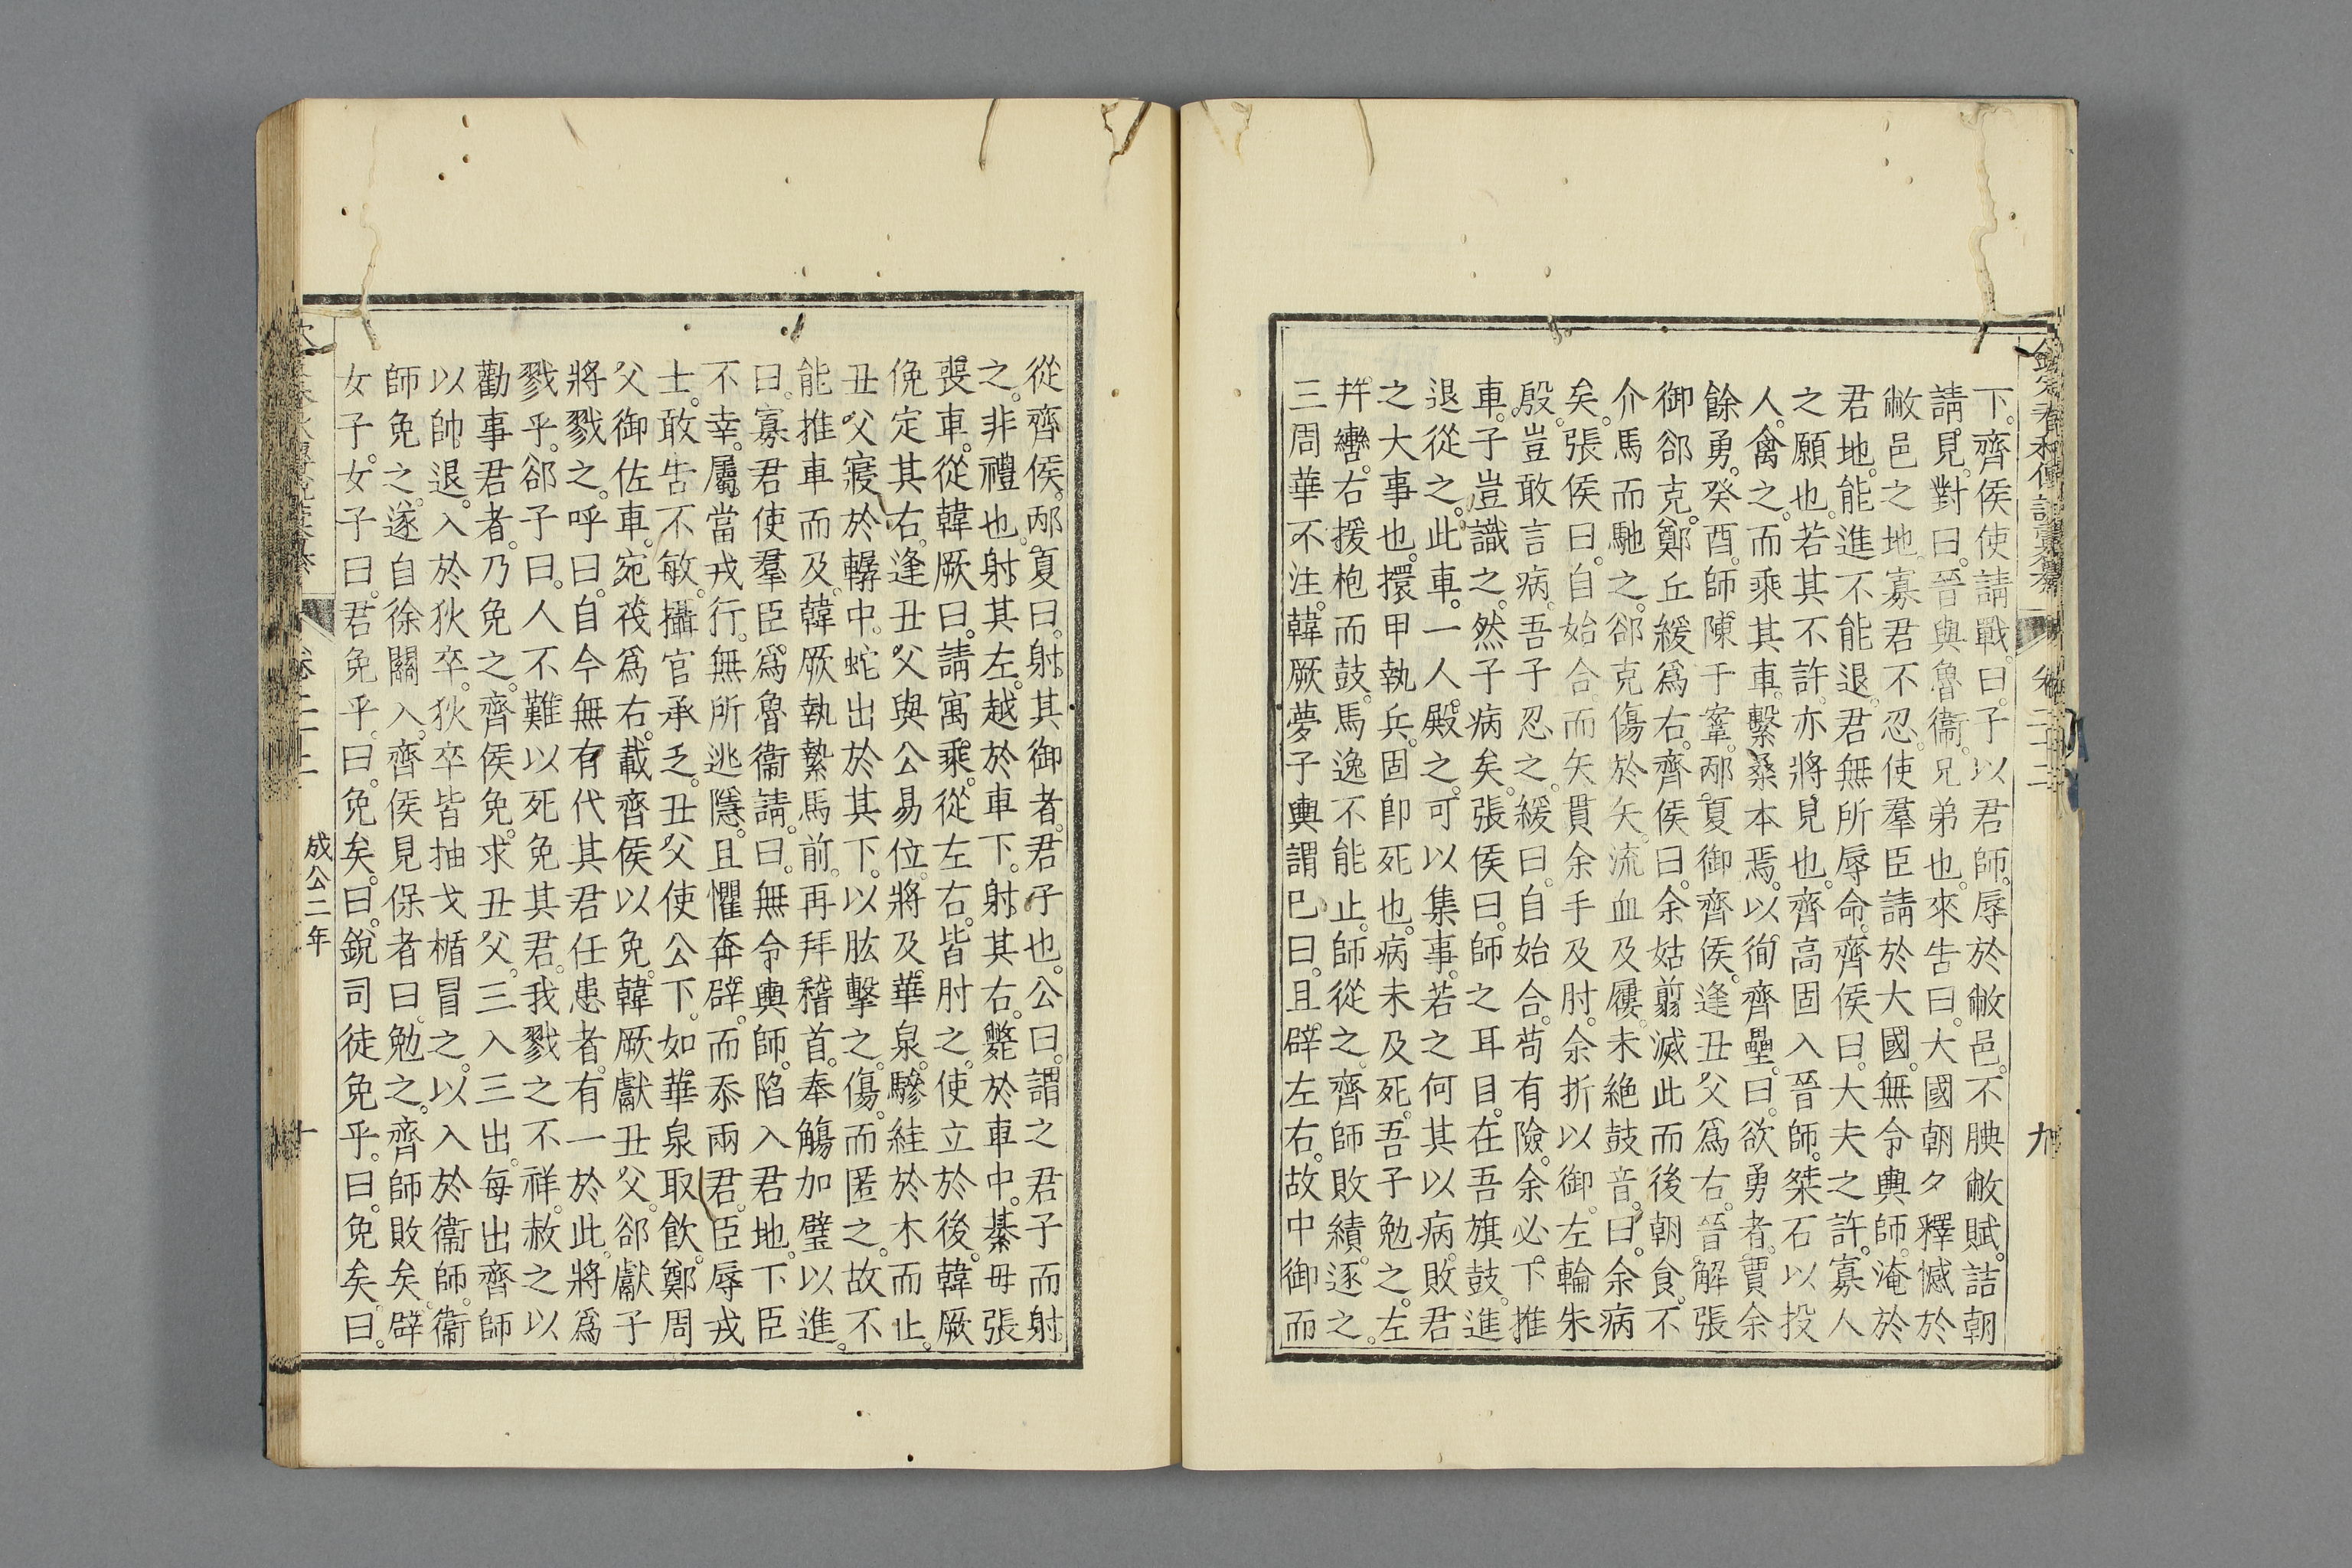 欽定春秋傳說彙纂 卷二十二 九
下。齊侯使請戰。曰。子以君師。辱於敝邑。不腆敝賦。詰朝
請見。對曰。晉與魯衞。兄弟也。來告曰。大國朝夕釋憾於
敝邑之地。寡君不忍。使羣臣請於大國。無令輿師。淹於
君地。能進不能退。君無所辱命。齊侯曰。大夫之許。寡人
之願也。若其不許。亦將見也。齊高固入晉師。桀石以投
人。禽之。而乘其車。繫桑本焉。以徇齊壘。曰。欲勇者。賈余
餘勇。癸酉。師陳于鞌。邴夏御齊侯。逢丑父爲右。晉解張
御郤克。鄭丘緩爲右。齊侯曰。余姑翦滅此而後朝食。不
介馬而馳之。郤克傷於矢。流血及屨。未絕鼓音。曰。余病
矣。張侯曰。自始合。而矢貫余手及肘。余折以御。左輪朱
殷。豈敢言病。吾子忍之。緩曰。自始合。苟有險。余必下推
車。子豈識之。然子病矣。張侯曰。師之耳目。在吾旗鼓。進
退從之。此車。一人殿之。可以集事。若之何其以病。敗君
之大事也。擐甲執兵。固卽死也。病未及死。吾子勉之。左
幷轡。右援枹而鼓。馬逸不能止。師從之。齊師敗績。逐之。
三周華不注。韓厥夢子輿謂已曰。且辟左右。故中御而
從齊侯。邴夏曰。射其御者。君子也。公曰。謂之君子而射
之。非禮也。射其左。越於車下。射其右。斃於車中。綦毋張
喪車。從韓厥曰。請寓乘。從左右。皆肘之。使立於後。韓厥
俛定其右。逢丑父與公易位。將及華泉。驂絓於木而止。
丑父寢於轏中。蛇出於其下。以肱擊之。傷。而匿之。故不
能推車而及。韓厥執縶馬前。再拜稽首。奉觴加璧以進。
曰。寡君使羣臣。爲魯衞請。曰。無令輿師。陷入君地。下臣
不幸。屬當戎行。無所逃隱。且懼奔辟。而忝兩君。臣辱戎
士。敢告不敏。攝官承乏。丑父使公下。如華泉取飮。鄭周
父御佐車。宛茷爲右。載齊侯以免。韓厥獻丑父。郤獻子
將戮之。呼曰。自今無有代其君任患者。有一於此。將爲
戮乎。郤子曰。人不難以死免其君。我戮之不祥。赦之以
勸事君者。乃免之。齊侯免。求丑父。三入三出。每出齊師
以帥退。入於狄卒。狄卒皆抽戈楯冒之。以入於衞師。衞
師免之。遂自徐關入。齊侯見保者曰。勉之。齊師敗矣。辟
女子。女子曰。君免乎。曰。免矣。曰。銳司徒免乎。曰。免矣。曰。
成公二年